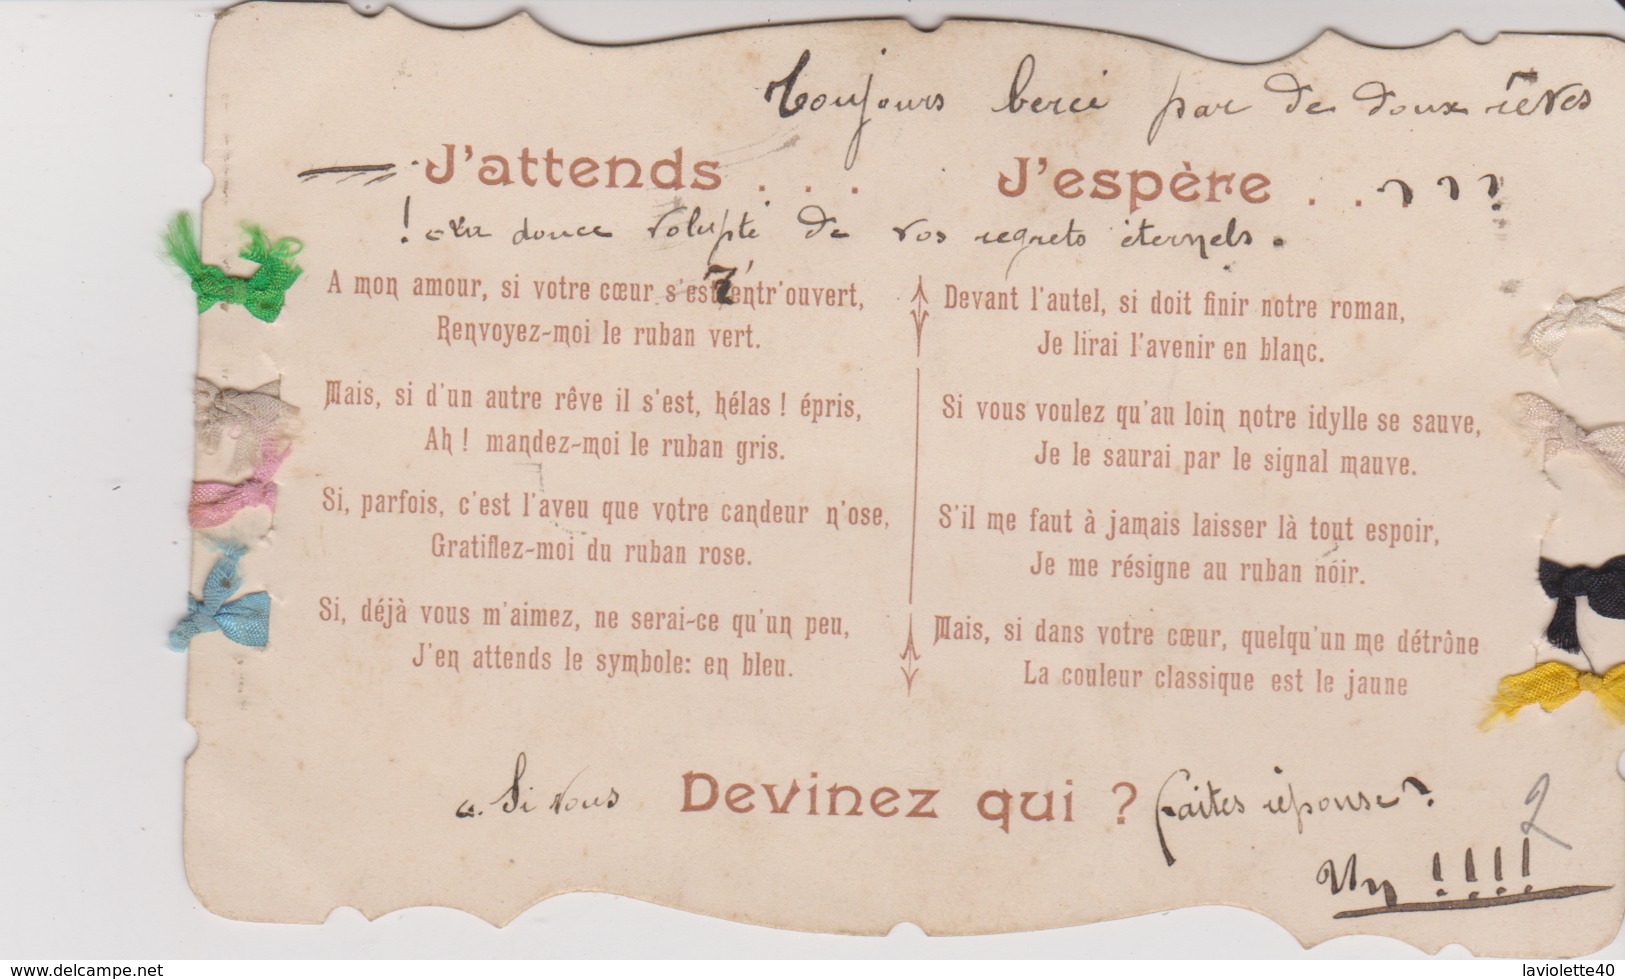 Toujours bercé par de doux rêves
J'attends . . . J'espère . . . ? ? ?
! La douce volupté de vos regrets éternels.
A mon amour, si votre cœur s'est entr'ouvert,
Renvoyez-moi le ruban vert.
Mais, si d'un autre rêve il s'est, hélas ! épris,
Ah ! mandez-moi le ruban gris.
Si, parfois, c'est l'aveu que votre candeur n'ose,
Gratifiez-moi du ruban rose.
Si, déjà vous m'aimez, ne serai-ce qu'un peu,
J'en attends le symbole: en bleu.
Devant l'autel, si doit finir notre roman,
Je lirai l'avenir en blanc.
Si vous voulez qu'au loin notre idylle se sauve,
Je le saurai par le signal mauve.
S'il me faut à jamais laisser là tout espoir,
Je me résigne au ruban noir.
Mais, si dans votre cœur, quelqu'un me détrône
La couleur classique est le jaune
Si vous Devinez qui ? faites réponse ?
2
Un !!!!
www.delcampe.net
laviolette40